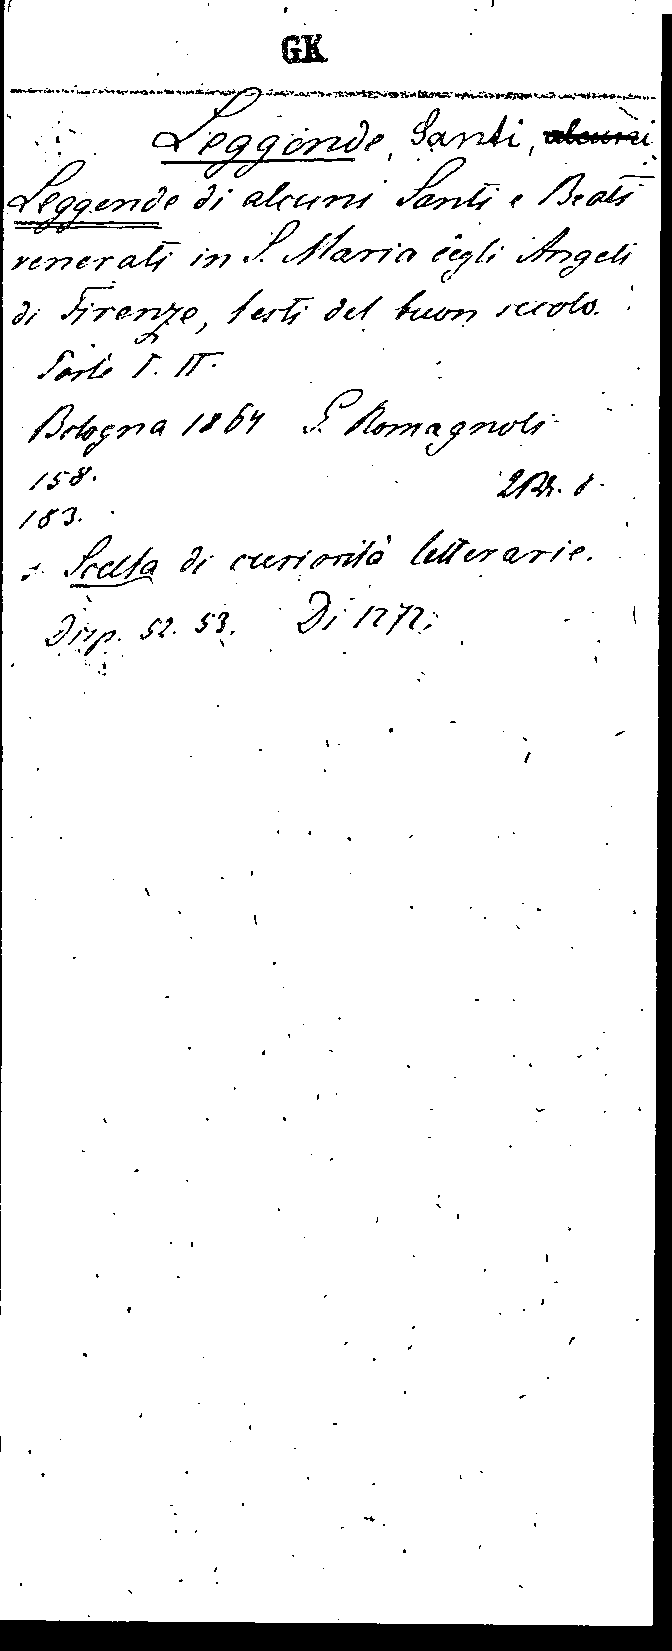 GK
Leggende, Santi, alcuni
Leggende di alcuni Santi e Beati
venerati in S. Maria degli Angeli
di Firenze, testi del buon secolo.
Parte I. II.
Bologna 1864 G. Romagnoli
158.
2 Bde. 8.
183.
s. Scelta di curiosità letterarie.
Disp. 52. 53. Di 1272;